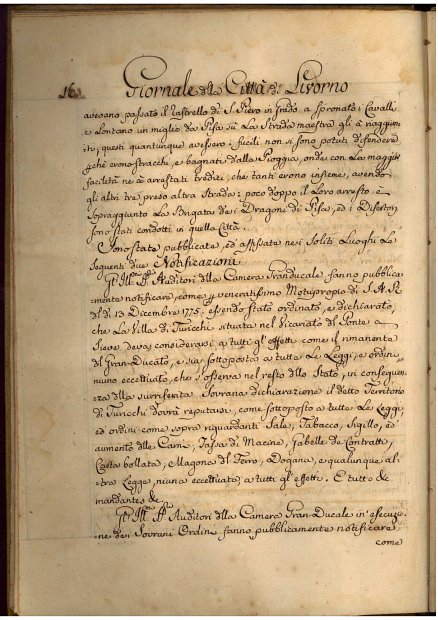 16.
Giornale della Città di Livorno
avevano passato il Rastrello di S. Piero in Grado a spronati i Cavalli
e Lontano un miglio da Pisa sù La Strada maestra gli à raggiun
ti, questi quantunque avessero i fucili non si sono potuti difendere
p.chè erono stracchi, e bagnati dalla Pioggia, onde con La maggior
facilità ne à arrestati tredici, che tanti erono insieme, avendo
gli altri tre preso altra Strada: poco doppo il Loro arresto è
sopraggiunta La Brigata dei Dragoni di Pisa, ed i Disertori
sono stati condotti in quella Città.
Sono state pubblicate, ed affissate nei Soliti Luoghi Le
Seguenti due Notificazioni
Gl' Ill.mi Auditori della Camera Granducale fanno pubblica-
mente notificare, come p veneratissimo Motuproprio di S. A. R.
del dì 13 Decembre 1775. essendo stato ordinato, e dichiarato,
che La Villa di Turicchi situata nel Vicariato del Ponte a
Sieve deva considerarsi a tutti gl'effetti come il rimanente
del Gran-Ducato, e sia sottoposto a tutte Le Leggi, e ordini,
niuno eccettuato, che s'osserva nel resto dello Stato, in consequen-
za della surriferita Sovrana dichiarazione il detto Territorio
di Turicchi dovrà reputarsi, come sottoposto a tutte Le Leggi,
ed ordini come sopra riguardanti Sale, Tabacco, Sigillo, e
aumento delle Carni, Tassa di Macine, Gabelle de Contratti,
Carta bollata, Magona del Ferro, Dogana, e qualunque al-
tra Legge, niuna eccettuata a tutti gl'effetti. E tutto &
mandantes &
Gl' Ill.mi Auditori della Camera Gran-Ducale in esecuzio-
ne dei Sovrani Ordini fanno pubblicamente notificare
come